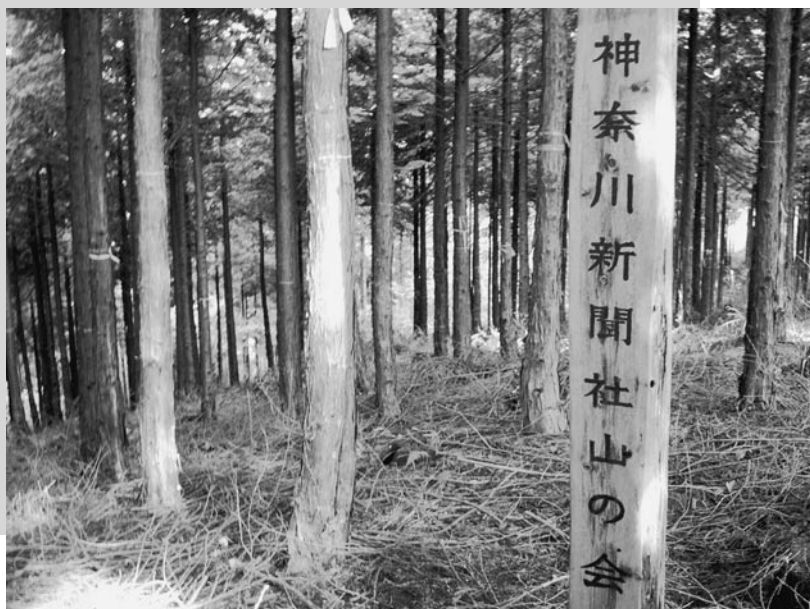 神奈川新聞社山の会